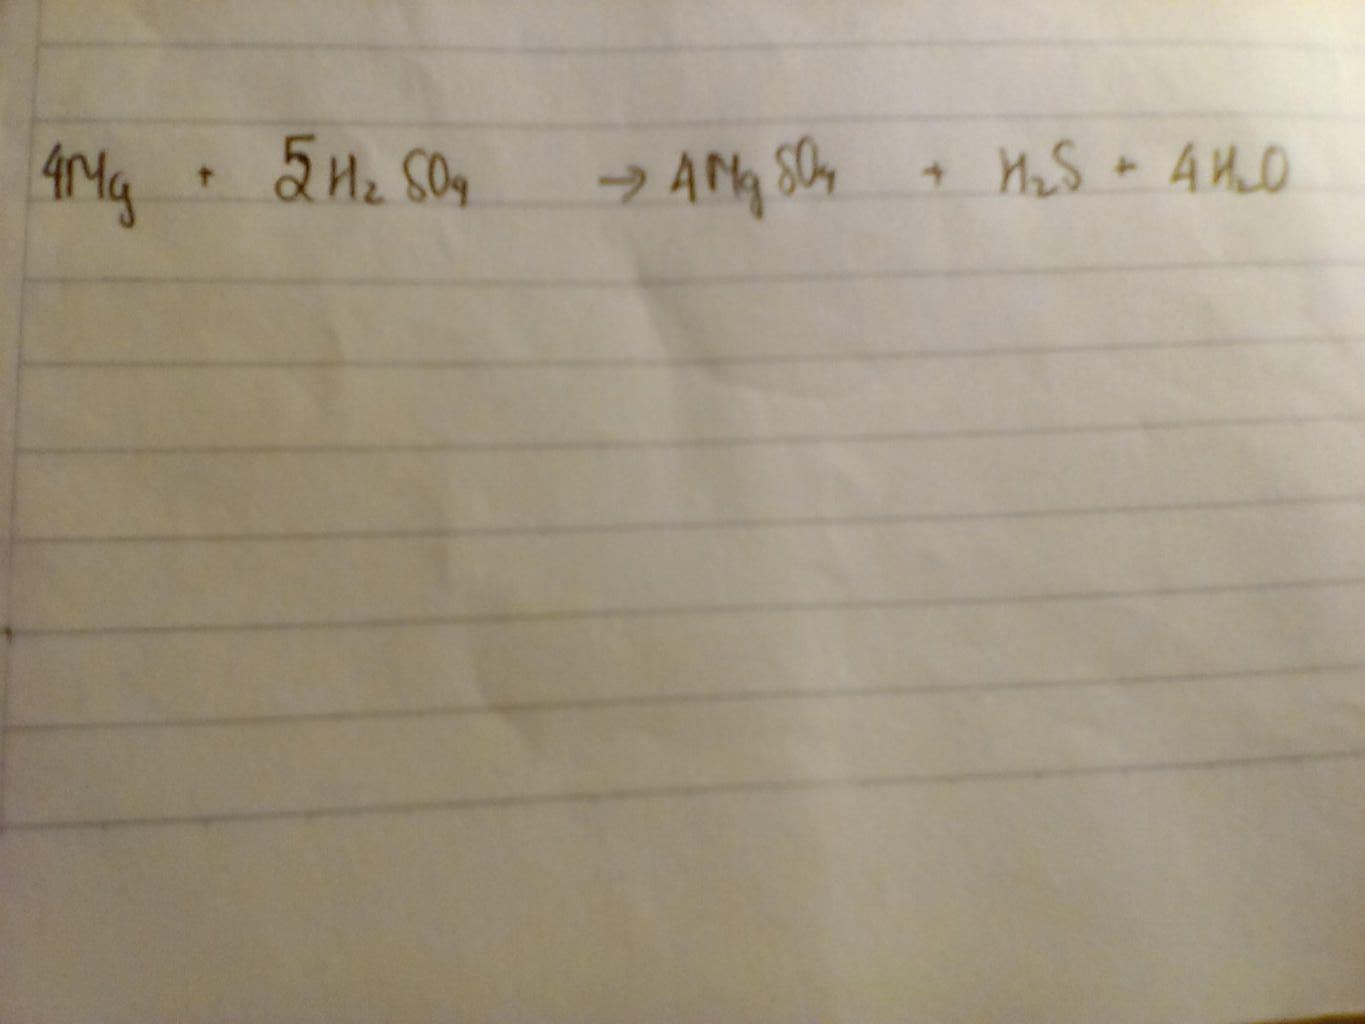 4Mg + 5H₂SO₄ → 4MgSO₄ + H₂S + 4H₂O